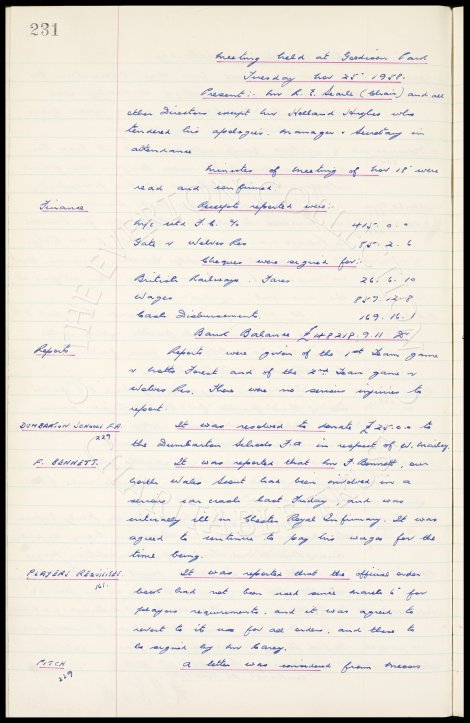 231
Meeting held at Goodison Park
Tuesday Nov 25th 1958.
Present:- Mr R. E. Searle (Chair) and all
other Directors except Mr Holland Hughes who
tendered his apologies. Manager & Secretary in
attendance
Minutes of meeting of Nov 18th were
read and confirmed.
Finance Receipts reported were:-
M/c Utd F.C. 415. 0. 0
Gate v Wolves Res 85. 2. 6
Cheques were signed for:-
British Railways. Fares 26. 6. 10
Wages 857. 12. 8
Cash Disbursements 169. 16. 1
Bank Balance £48218. 9. 11 Dr
Reports Reports were given of the 1st Team game
v Notts Forest and of the 2nd Team game v
Wolves Res. There were no serious injuries to
report.
DUMBARTON SCHOOLS F.A. It was resolved to donate £25. 0. 0 to
229 the Dumbarton Schools F.A in respect of W. Mailey.
F. BENNETT. It was reported that Mr F. Bennett, our
North Wales Scout had been involved in a
serious car crash last Friday, and was
critically ill in Chester Royal Infirmary. It was
agreed to continue to pay his wages for the
time being.
PLAYERS REQUISITES. It was reported that the official order
161. book had not been used since March 6th for
players requirements, and it was agreed to
revert to its use for all orders, and these to
be signed by Mr Carey.
PITCH A letter was considered from Messrs
229
THE EVERTON COLLECTION